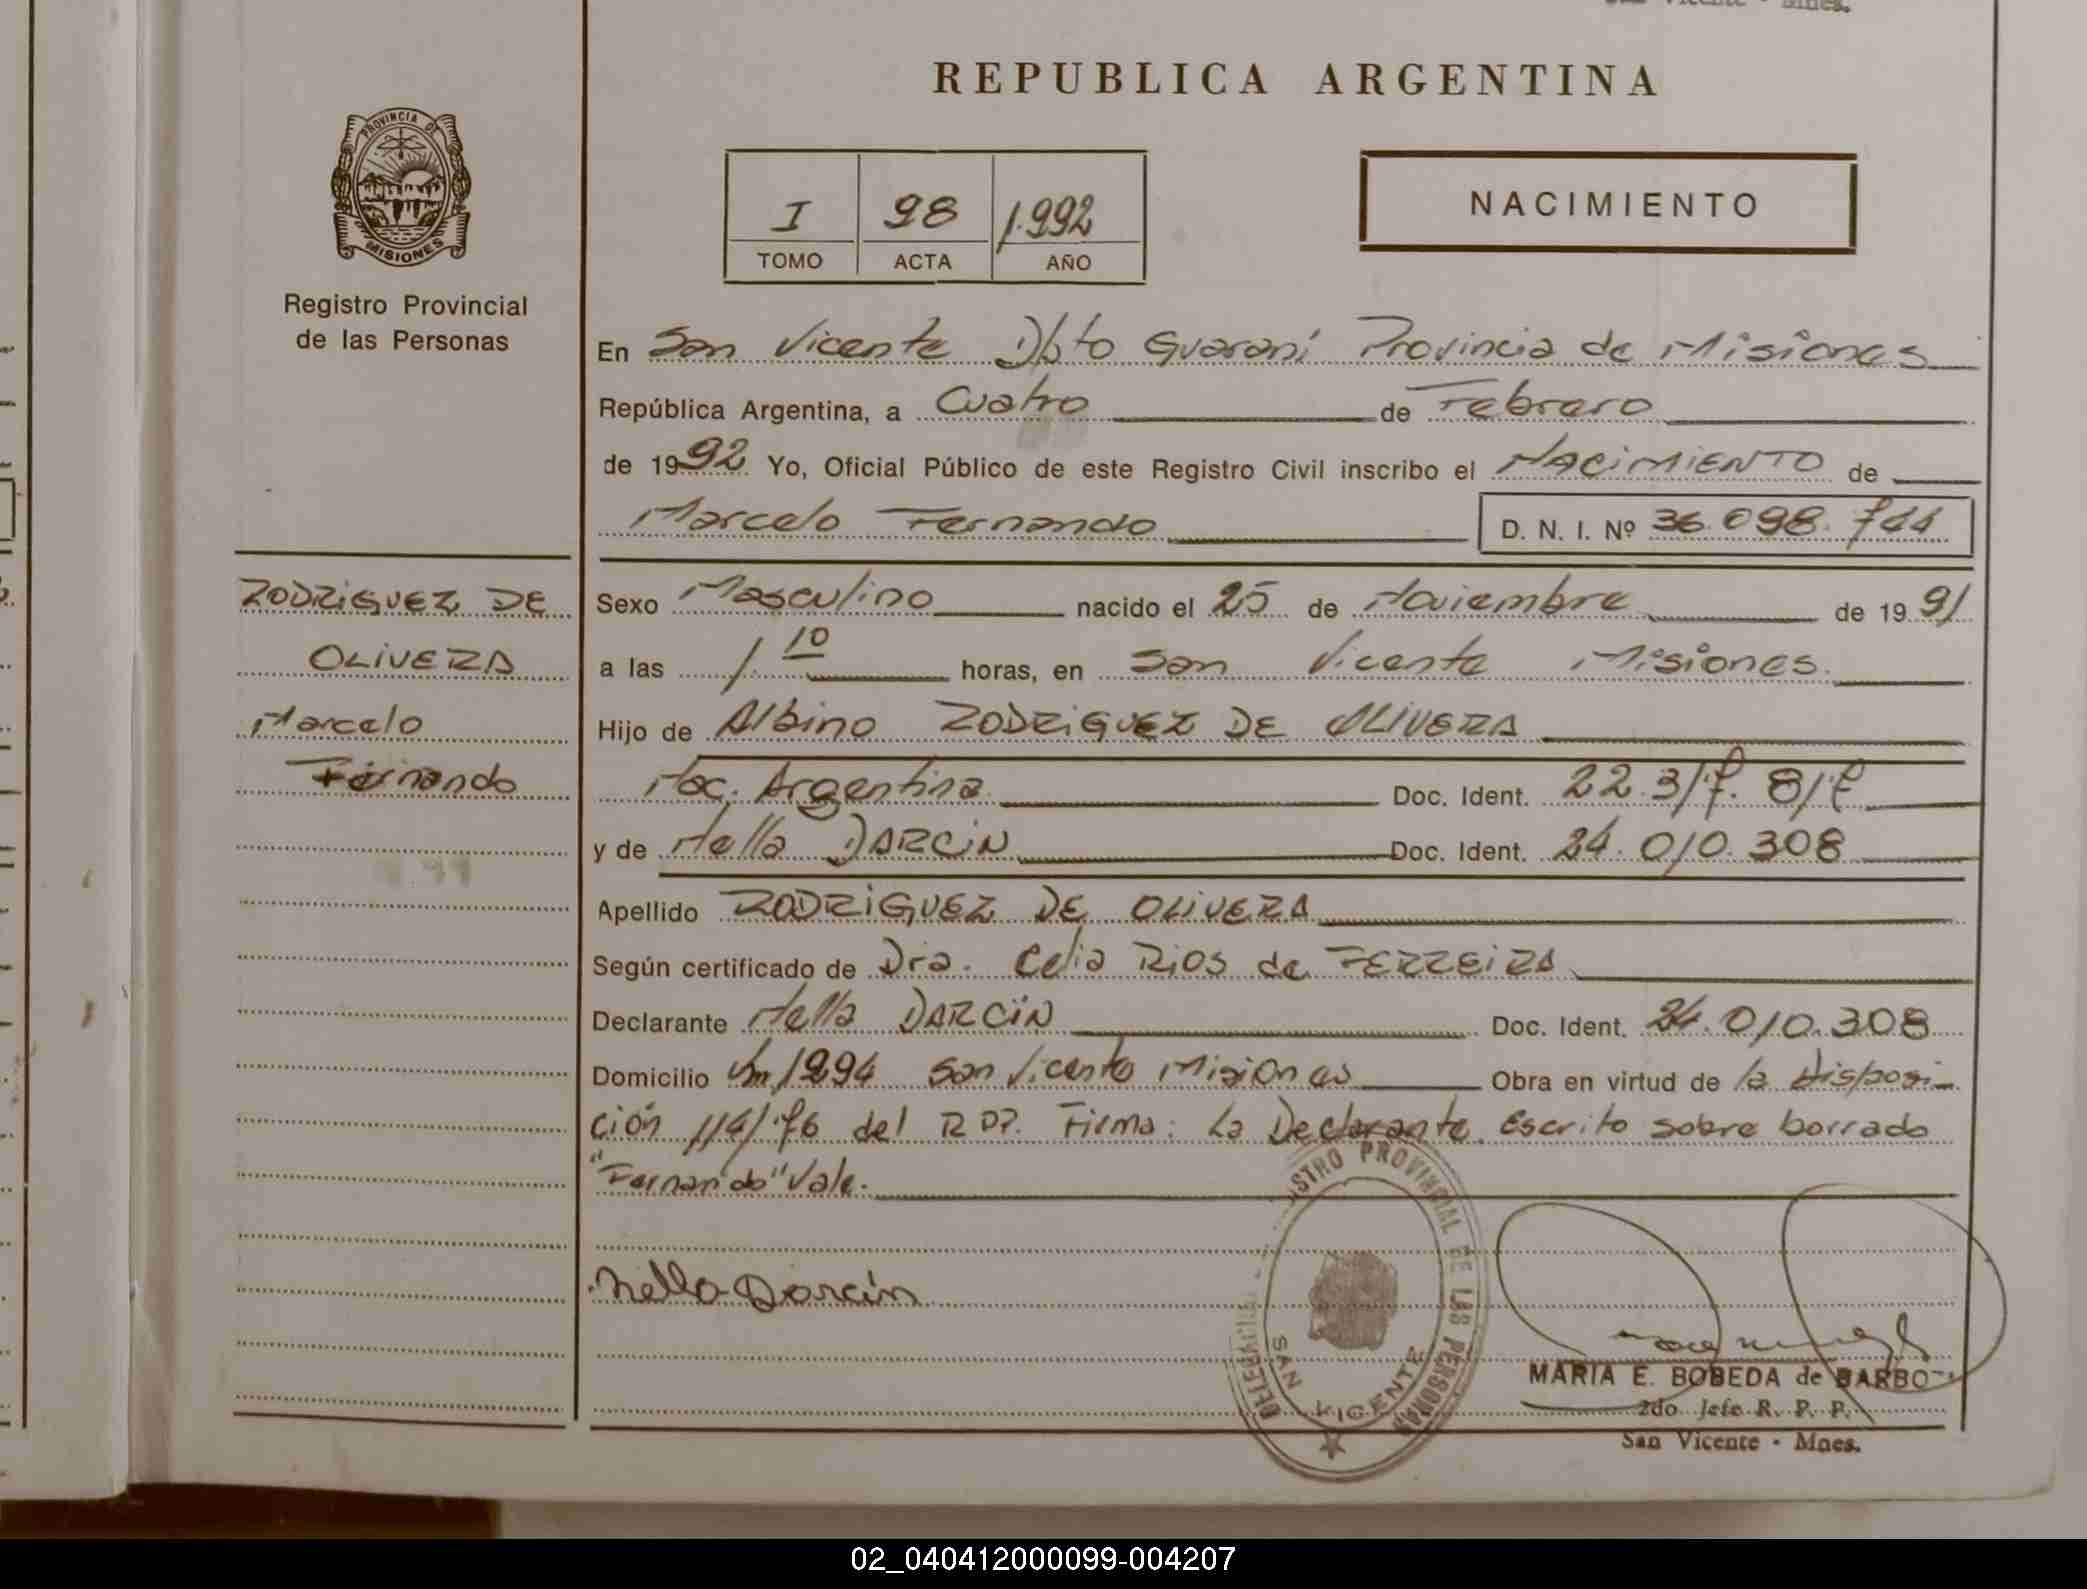 REPUBLICA ARGENTINA
PROVINCIA DE
MISIONES
Registro Provincial
de las Personas
I 98 1.992
TOMO ACTA AÑO
NACIMIENTO
En San Vicente Dpto Guaraní Provincia de Misiones
República Argentina, a Cuatro de Febrero
de 1992 Yo, Oficial Público de este Registro Civil inscribo el NACIMIENTO de
Marcelo Fernando D. N. I. Nº 36.098.744
RODRIGUEZ DE
OLIVERA
Marcelo
Fernando
Sexo Masculino nacido el 25 de Noviembre de 1991
a las 1.10 horas, en San Vicente Misiones.
Hijo de Albino RODRIGUEZ DE OLIVERA
Nac. Argentina Doc. Ident. 22.317.817
y de Nella DARCIN Doc. Ident. 24.010.308
Apellido RODRIGUEZ DE OLIVERA
Según certificado de Dra. Celia RIOS de FERREIRA
Declarante Nella DARCIN Doc. Ident. 24.010.308
Domicilio Km 1294 San Vicente Misiones Obra en virtud de la disposi-
ción 114/76 del RDP. Firma: La Declarante. Escrito sobre borrado
"Fernando" Vale.
Nella Darcin
REGISTRO PROVINCIAL DE LAS PERSONAS
DELEGACION
SAN VICENTE
MARIA E. BOBEDA de BARBO
2do Jefe R. P. P.
San Vicente - Mnes.
02_040412000099-004207